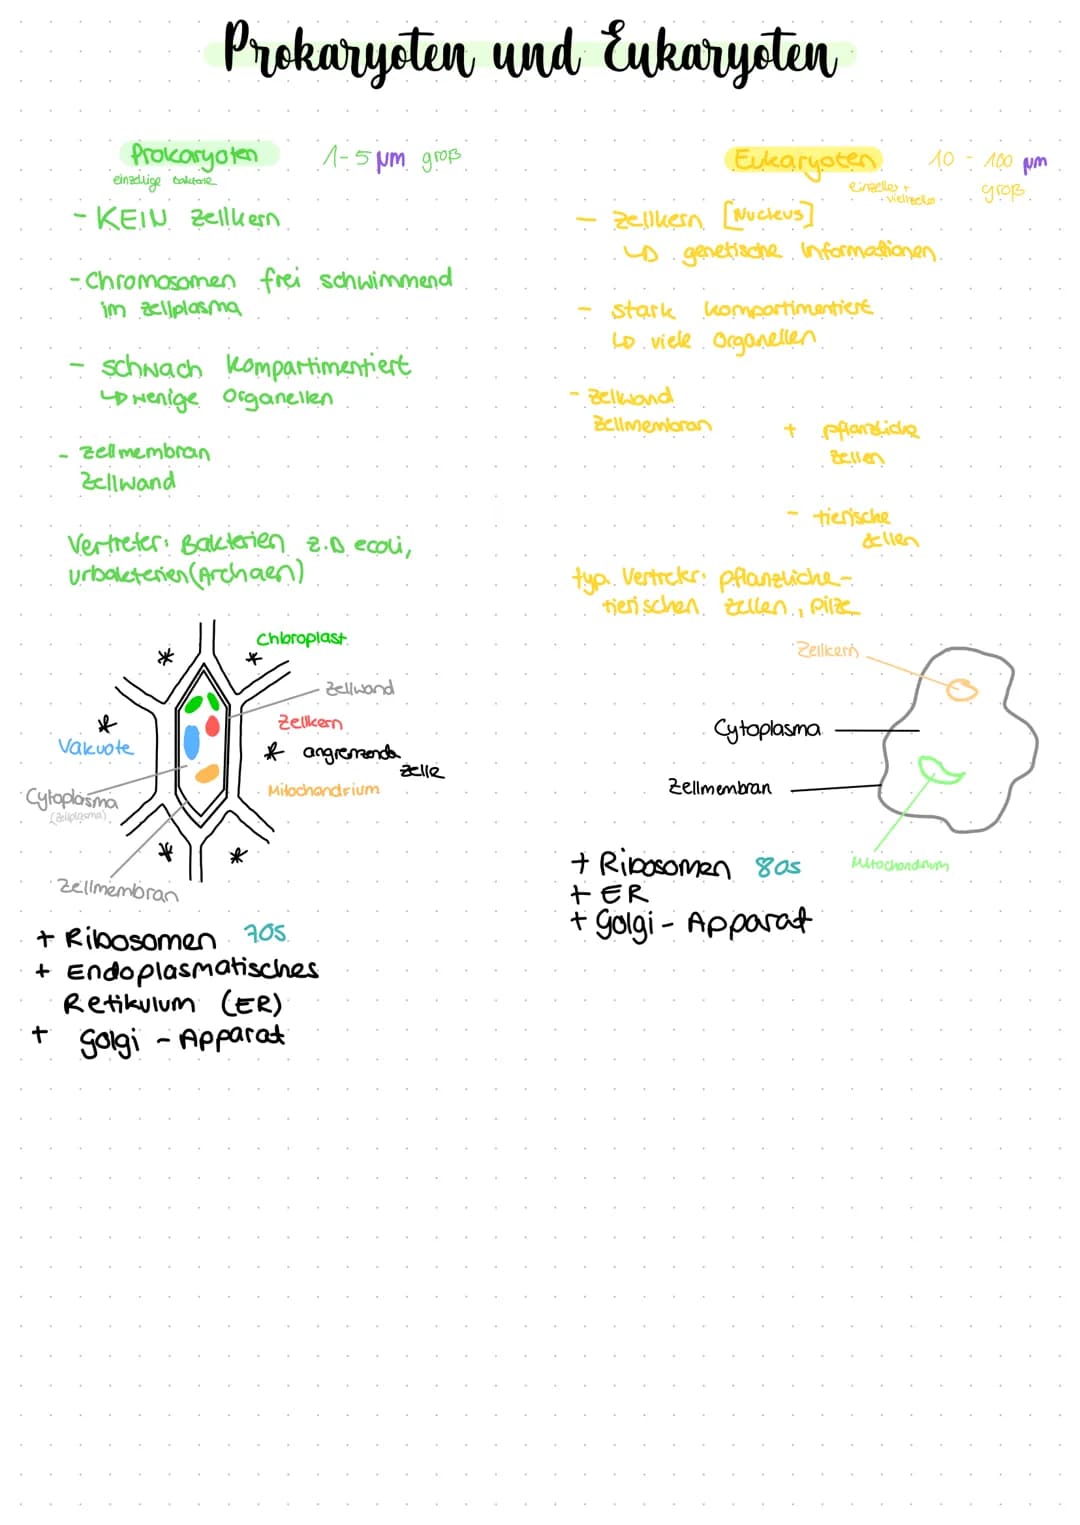 Prokaryoten und Eukaryoten
Prokaryoten 1-5 µm groß
einzellige Bakterie
- KEIN Zellkern
- Chromosomen frei schwimmend
im Zellplasma
- schwach kompartimentiert
↳ wenige Organellen
- Zellmembran
Zellwand
Vertreter: Bakterien z.B ecoli,
Urbakterien (Archaen)
Chloroplast
Zellwand
Zellkern
Vakuole
* angrenzende
Zelle
Mitochondrium
Cytoplasma
(Zellplasma)
Zellmembran
+ Ribosomen 70s
+ Endoplasmatisches
Retikulum (ER)
+ Golgi - Apparat
Eukaryoten 10 - 100 µm
groß
einzeller +
vielzeller
- Zellkern [Nucleus]
↳ genetische Informationen
- stark kompartimentiert
↳ viele Organellen
- Zellwand
Zellmembran
+ pflanzliche
Zellen
- tierische
Zellen
typ. Vertreter: pflanzliche-
tierischen Zellen, Pilze
Zellkern
Cytoplasma
Zellmembran
Mitochondrium
+ Ribosomen 80s
+ ER
+ Golgi - Apparat